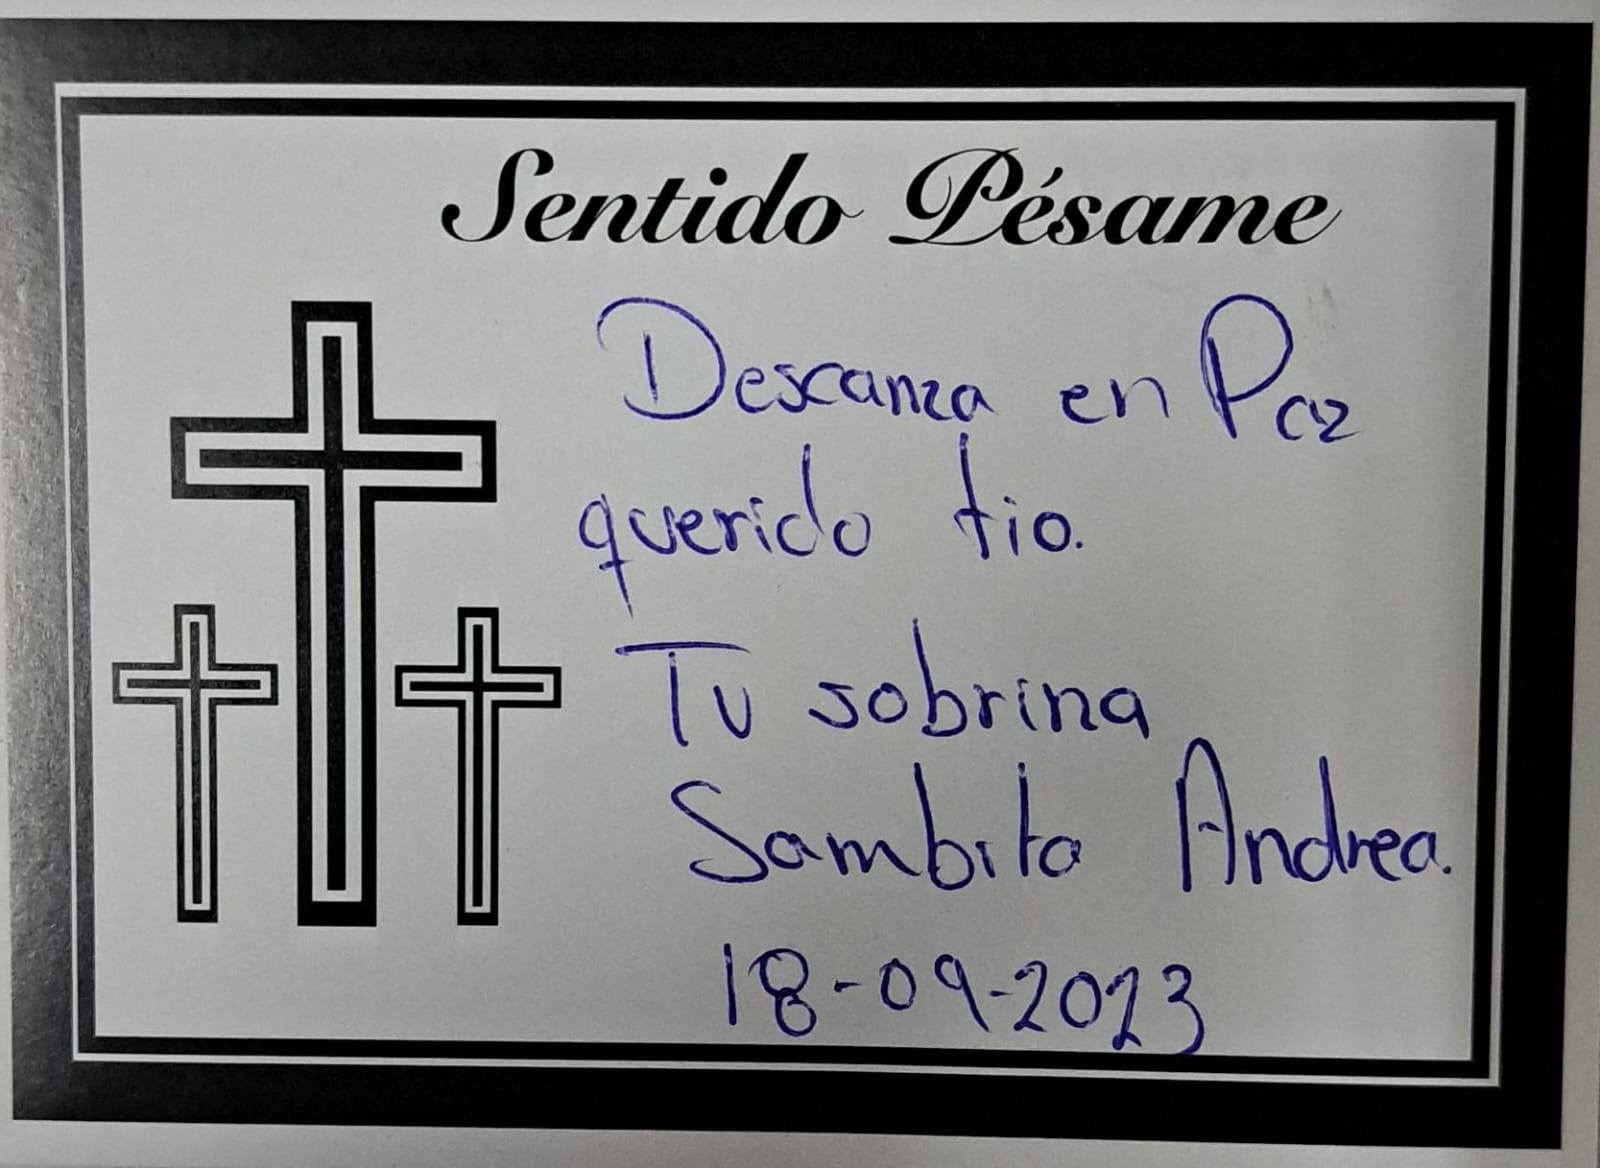 Sentido Pésame
Descanza en Paz
querido tio.
Tu sobrina
Sambita Andrea.
18-09-2023